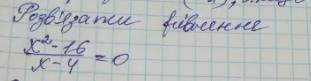 Розв'язати рівняння
x²-16
x-4 =0